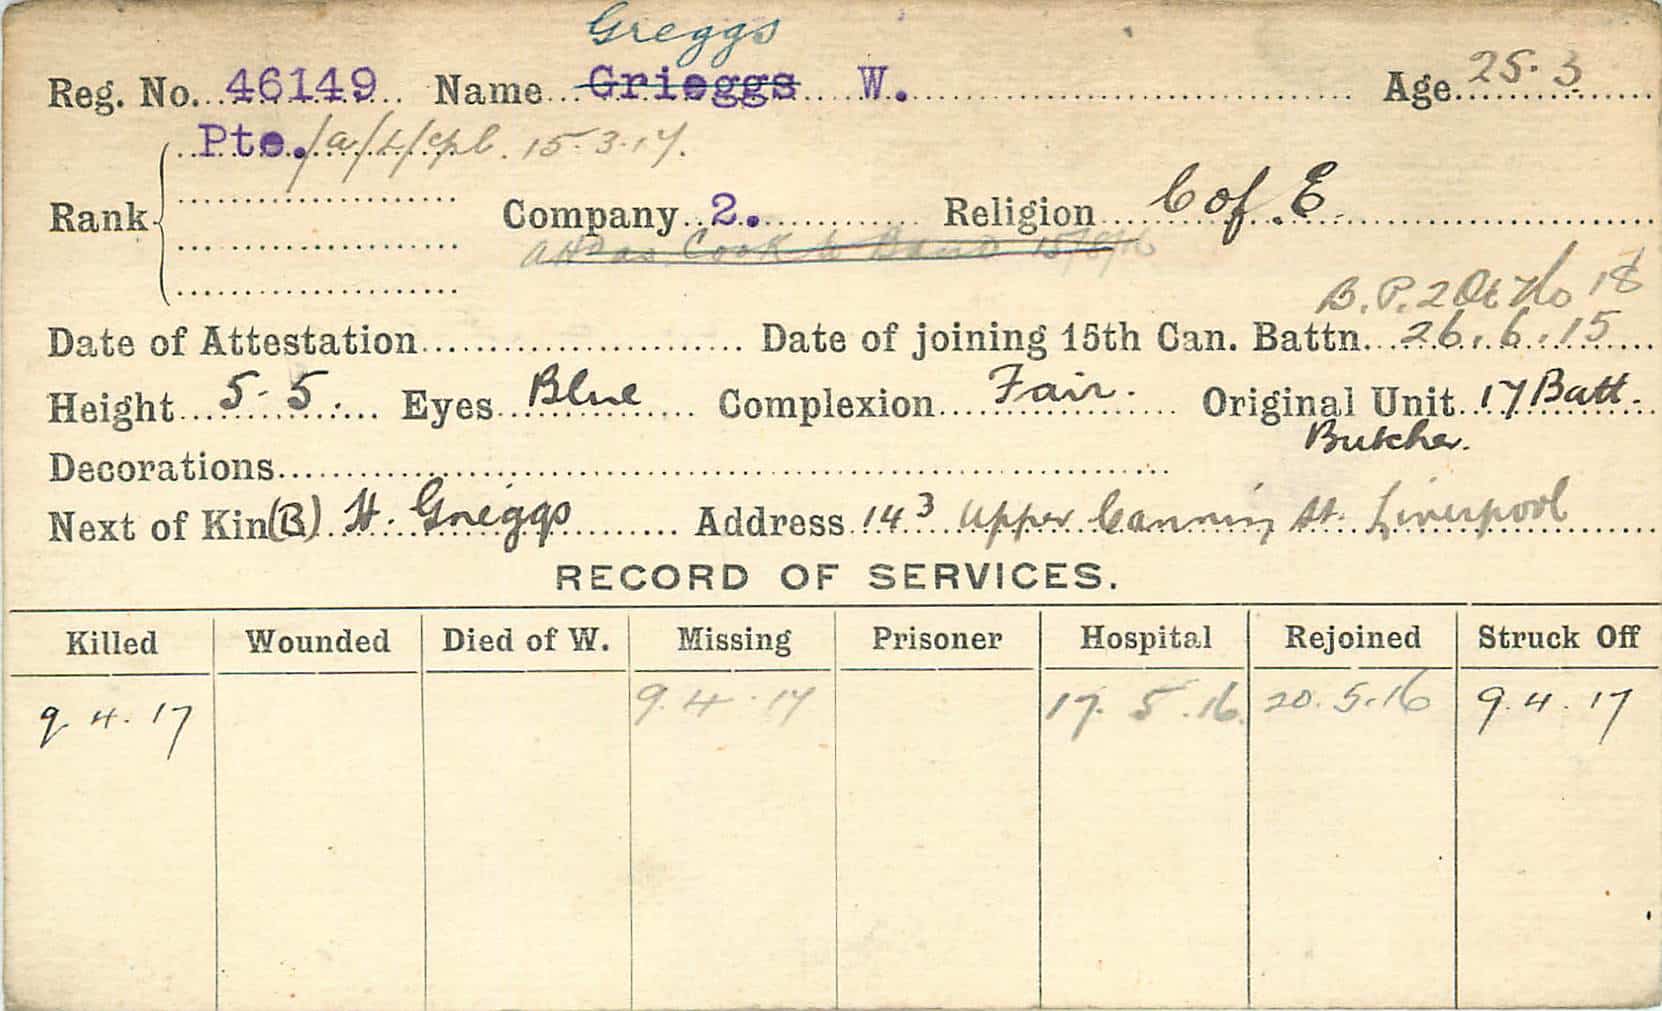 Greggs
Reg. No. 46149 Name Grieggs W. Age 25.3
Pte./a/L/Cpl. 15.3.17.
Rank
Company 2. Religion C of E
Att'd as Cook to Band 15/8/16
B.P. 2 Ot No 18
Date of Attestation Date of joining 15th Can. Battn. 26.6.15
Height 5.5. Eyes Blue Complexion Fair. Original Unit 17 Batt.
Butcher.
Decorations
Next of Kin (B) H. Greggs Address 143 Upper Canning St. Liverpool
RECORD OF SERVICES.
Killed Wounded Died of W. Missing Prisoner Hospital Rejoined Struck Off
9.4.17 9.4.17 17.5.16. 20.5.16 9.4.17